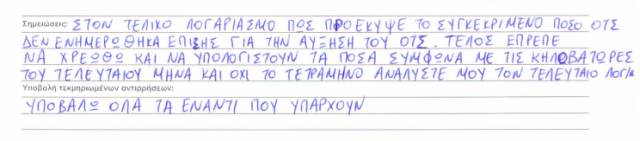 Σημειώσεις: ΣΤΟΝ ΤΕΛΙΚΟ ΛΟΓΑΡΙΑΣΜΟ ΠΩΣ ΠΡΟΕΚΥΨΕ ΤΟ ΣΥΓΚΕΚΡΙΜΕΝΟ ΠΟΣΟ ΟΤΣ
ΔΕΝ ΕΝΗΜΕΡΩΘΗΚΑ ΕΠΙΣΗΣ ΓΙΑ ΤΗΝ ΑΥΞΗΣΗ ΤΟΥ ΟΤΣ. ΤΕΛΟΣ ΕΠΡΕΠΕ
ΝΑ ΧΡΕΩΘΩ ΚΑΙ ΝΑ ΥΠΟΛΟΓΙΣΤΟΥΝ ΤΑ ΠΟΣΑ ΣΥΜΦΩΝΑ ΜΕ ΤΙΣ ΚΗΛΟΒΑΤΩΡΕΣ
ΤΟΥ ΤΕΛΕΥΤΑΙΟΥ ΜΗΝΑ ΚΑΙ ΟΧΙ ΤΟ ΤΕΤΡΑΜΗΝΟ ΑΝΑΛΥΣΤΕ ΜΟΥ ΤΟΝ ΤΕΛΕΥΤΑΙΟ ΛΟΓ/Μ
Υποβολή τεκμηριωμένων αντιρρήσεων:
ΥΠΟΒΑΛΩ ΟΛΑ ΤΑ ΕΝΑΝΤΙ ΠΟΥ ΥΠΑΡΧΟΥΝ